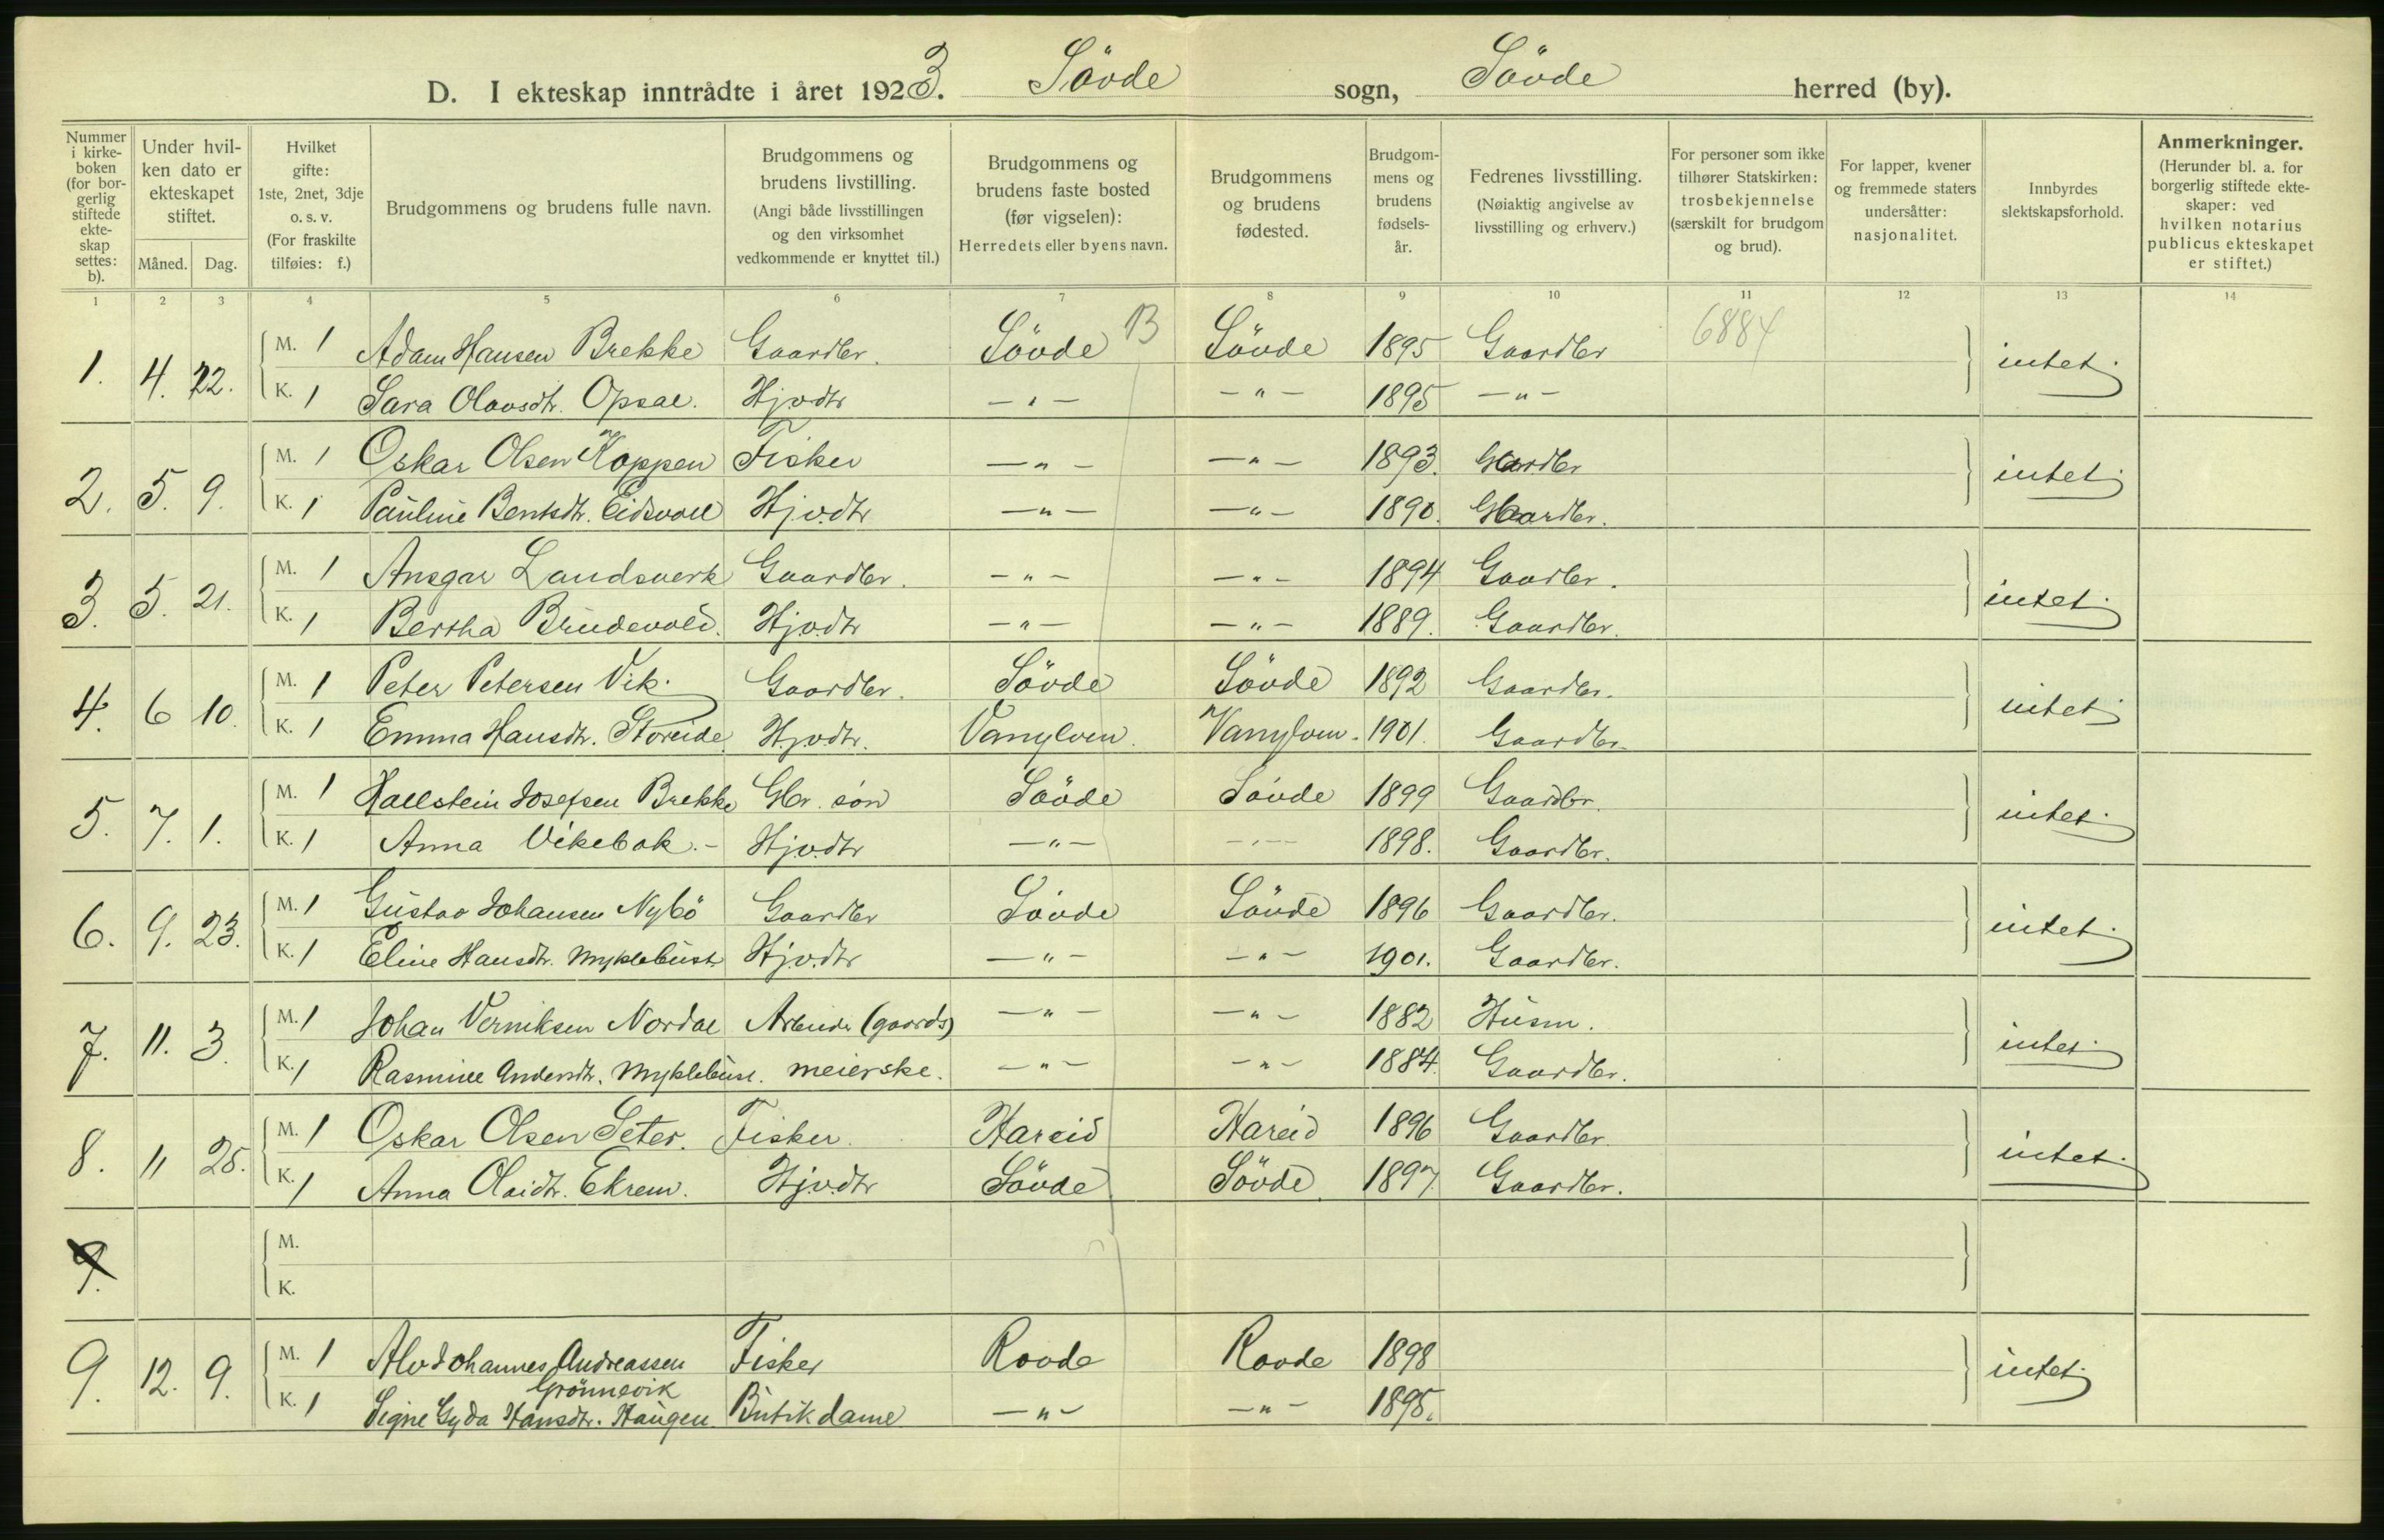 D. I ekteskap inntrådte i året 1923. Sövde sogn, Sövde herred (by).
Nummer i kirkeboken (for borgerlig stiftede ekteskap settes: b).
Under hvilken dato er ekteskapet stiftet.
Måned. Dag.
Hvilket gifte: 1ste, 2net, 3dje o. s. v. (For fraskilte tilføies: f.)
Brudgommens og brudens fulle navn.
Brudgommens og brudens livstilling. (Angi både livsstillingen og den virksomhet vedkommende er knyttet til.)
Brudgommens og brudens faste bosted (før vigselen): Herredets eller byens navn.
Brudgommens og brudens fødested.
Brudgommens og brudens fødselsår.
Fedrenes livsstilling. (Nøiaktig angivelse av livsstilling og erhverv.)
For personer som ikke tilhører Statskirken: trosbekjennelse (særskilt for brudgom og brud).
For lapper, kvener og fremmede staters undersåtter: nasjonalitet.
Innbyrdes slektskapsforhold.
Anmerkninger. (Herunder bl. a. for borgerlig stiftede ekteskaper: ved hvilken notarius publicus ekteskapet er stiftet.)
1 2 3 4 5 6 7 8 9 10 11 12 13 14
B 6884
1. 4. 22. M. 1 Adam Hansen Brekke Gaardbr. Sövde Sövde 1895 Gaardbr intet.
K. 1 Sara Olavsdtr. Opsal. Hjvdtr -"- -"- 1895 -"-
2. 5. 9. M. 1 Oskar Olsen Koppen Fisker -"- -"- 1893. Gaardbr intet.
K. 1 Pauline Bentsdtr. Eidsvoll Hjvdtr -"- -"- 1890. Gaardbr.
3. 5. 21. M. 1 Ansgar Landsverk Gaardbr. -"- -"- 1894 Gaardbr. intet.
K. 1 Bertha Brudevold. Hjvdtr -"- -"- 1889. Gaardbr.
4. 6 10. M. 1 Peter Petersen Vik. Gaardbr. Sövde Sövde 1892 Gaardbr. intet.
K. 1 Emma Hansdtr. Storeide. Hjvdtr. Vanylven. Vanylven. 1901. Gaardbr.
5. 7. 1. M. 1 Hallstein Josefsen Brekke Gbr. søn Sövde Sövde 1899 Gaardbr. intet.
K. 1 Anna Vikebak. - Hjvdtr -"- -"- 1898. Gaardbr.
6. 9. 23. M. 1 Gustav Johansen Nybö Gaardbr Sövde Sövde 1896 Gaardbr. intet.
K. 1 Eline Hansdtr. Myklebust Hjvdtr -"- -"- 1901. Gaardbr.
7. 11. 3. M. 1 Johan Verniksen Nordal Arbeider (gaards) -"- -"- 1882 Husm. intet.
K. 1 Rasmine Andersdtr. Myklebust. meierske. -"- -"- 1884. Gaardbr.
8. 11 25. M. 1 Oskar Olsen Seter. Fisker. Hareid Hareid 1896 Gaardbr. intet.
K. 1 Anna Olaidtr. Ekrem. Hjvdtr Sövde Sövde. 1897. Gaardbr.
9. M.
K.
9. 12. 9. M. 1 Alv Johannes Andreassen Fisker Rovde Rovde 1898 intet.
Grönnevik
K. 1 Signe Gyda Hansdtr. Haugen Butikdame -"- -"- 1895.